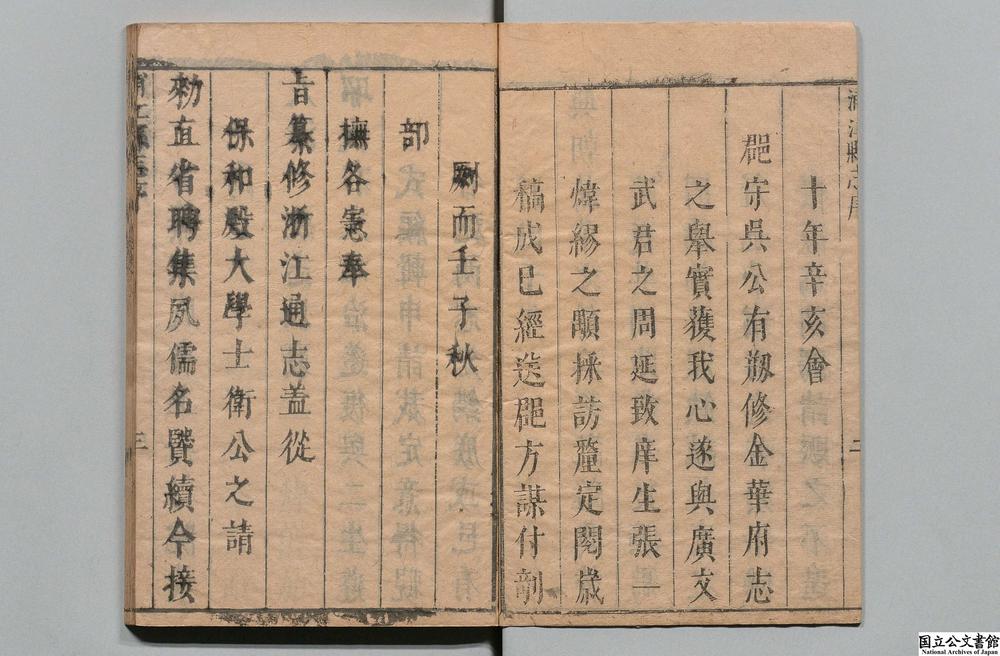 浦江縣志序
二
十年辛亥會
郡守吳公有剏修金華府志
之舉實獲我心遂與廣文
武君之周延致庠生張一
煒繆之顒採訪釐定閱歲
稿成已經送郡方謀付剞
劂而壬子秋
部
撫各憲奉
旨纂修浙江通志盖從
保和殿大學士衛公之請
勑直省聘集夙儒名賢續今接
浦江縣志序
三
国立公文書館
National Archives of Japan